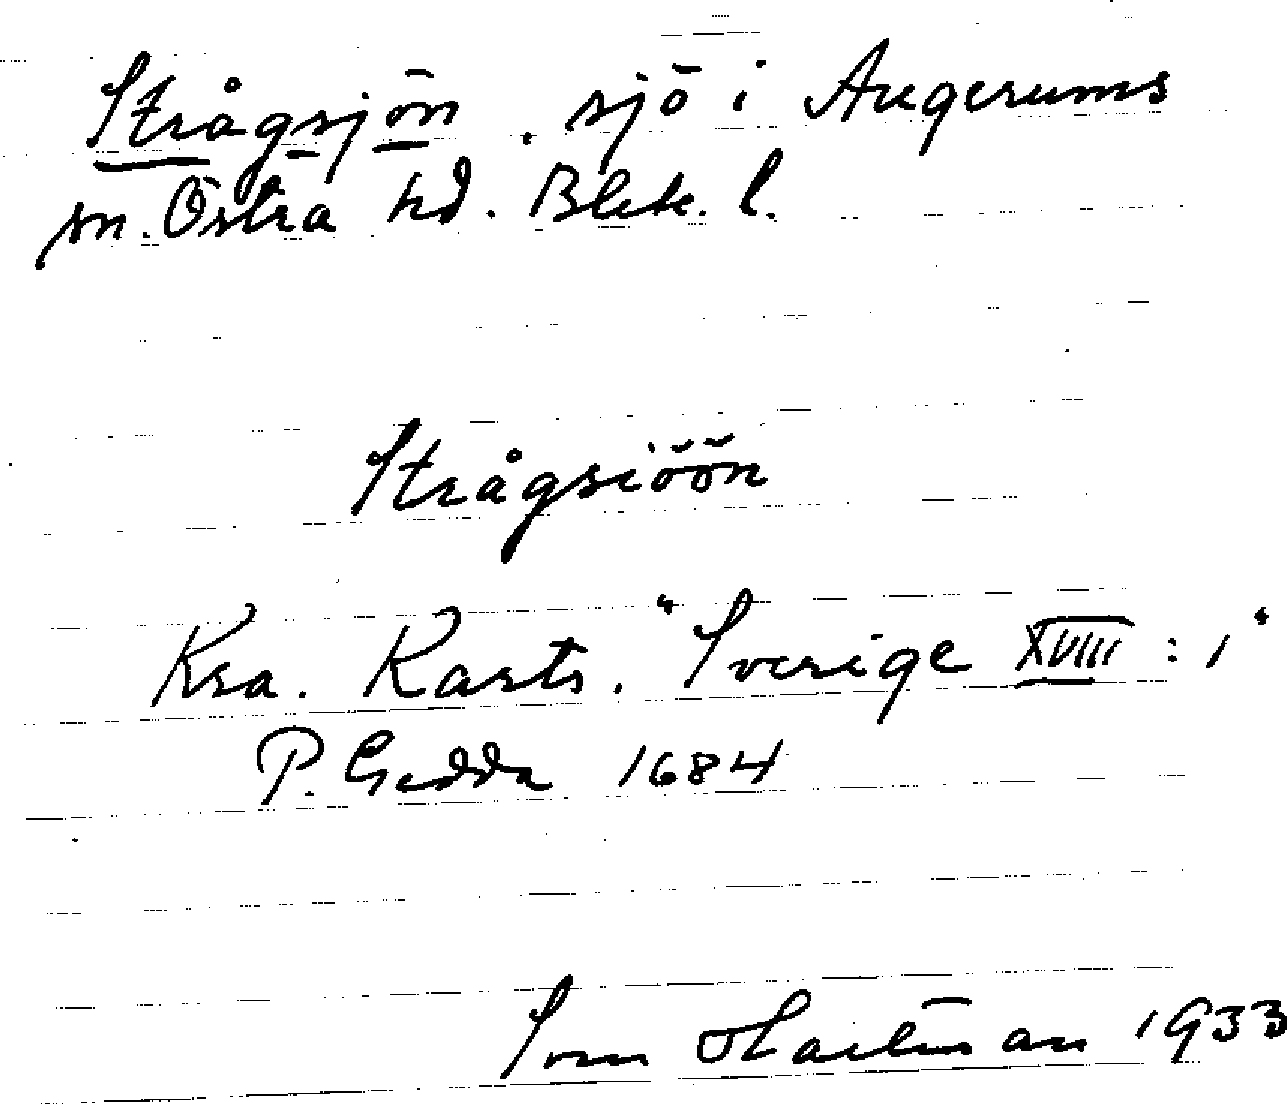 Strågsjön . sjö i Augerums
sn. Östra hd. Blek. l.
Strågsiöön
Kra. Karts. "Sverige XVIII : 1"
P. Gedda 1684
1933